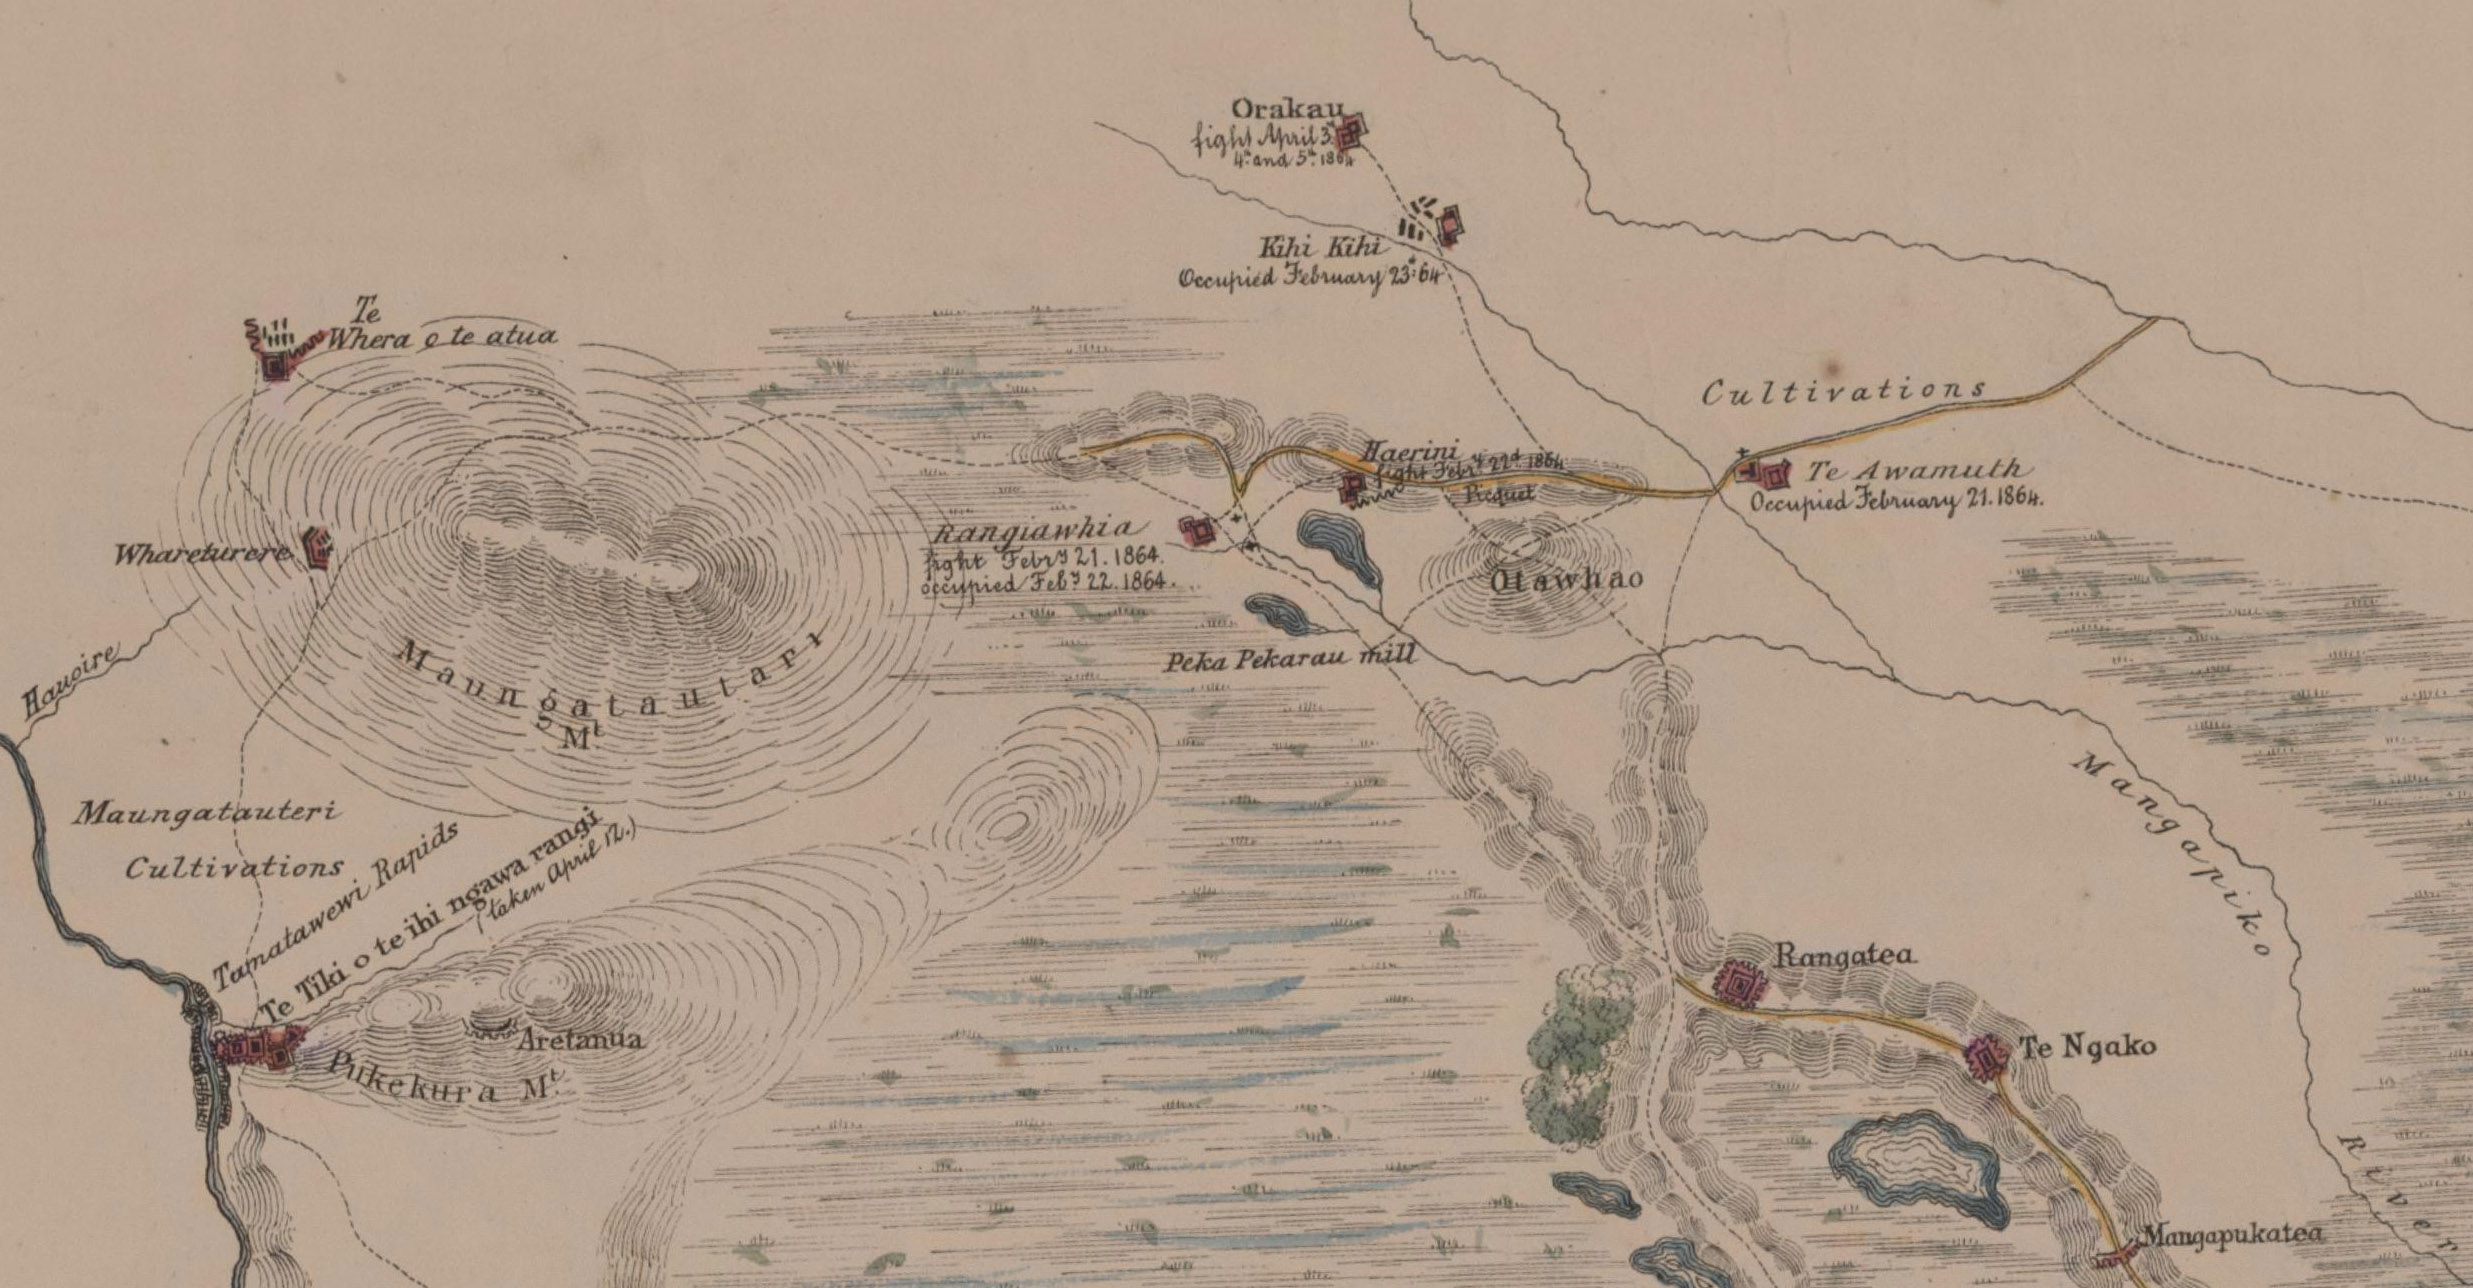 Orakau
fight April 3d
4th and 5th 1864
Kihi Kihi
Occupied February 23d 64
Te
Whera o te atua
Cultivations
Haerini
fight Febry 22d 1864
Picquet
Te Awamuth
Occupied February 21. 1864.
Rangiawhia
fight Febry 21. 1864.
occupied Feby 22. 1864.
Whareturere
Otawhao
Peka Pekarau mill
Hauoire
Maungatautari
Mt
Maungatauteri
Cultivations
Tamatawewi Rapids
Te Tiki o te ihi ngawa rangi
(taken April 12.)
Mangapiko
River
Rangatea
Te Ngako
Aretanua
Pukekura Mt
Mangapukatea